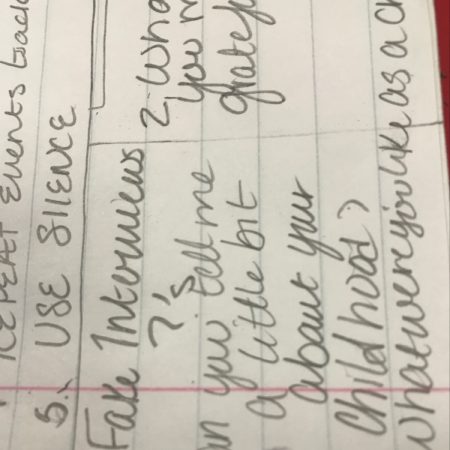 REPEAT EVENTS back
5. USE SILENCE
Fake Interviews
?'s
you tell me
a little bit
about your
Childhood?
what were you like as a
2. 
you